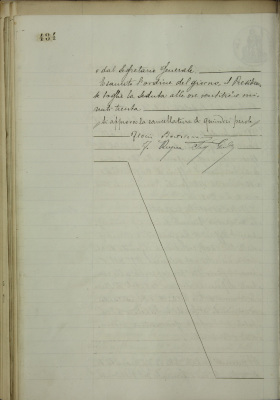 434
e dal Segretario Generale
Esaurito l'ordine del giorno il Presiden
te toglie la seduta alle ore ventitrè e mi
nuti trenta
Si approva la cancellatura di quindici parole